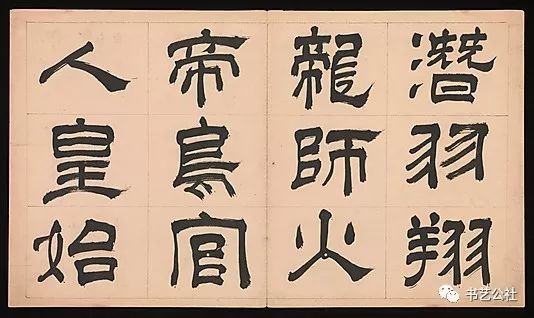 潛羽翔
龍師火
帝鳥官
人皇始
书艺公社